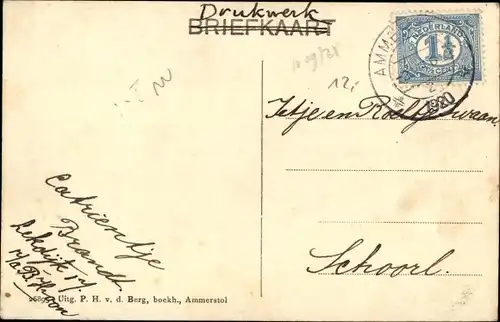 Drukwerk
BRIEFKAART
NEDERLAND
1½
CENT
AMM
1920
12,
Jetje en Roeltje
Schoorl.
Catrientje
Brandt.
Lekdijk 14
Uitg. P. H. v. d. Berg, boekh., Ammerstol